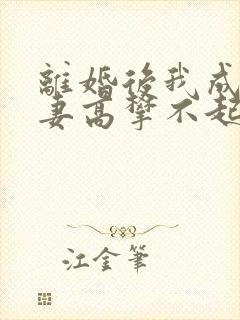 離婚後我成
妻高攀不起
江金筆